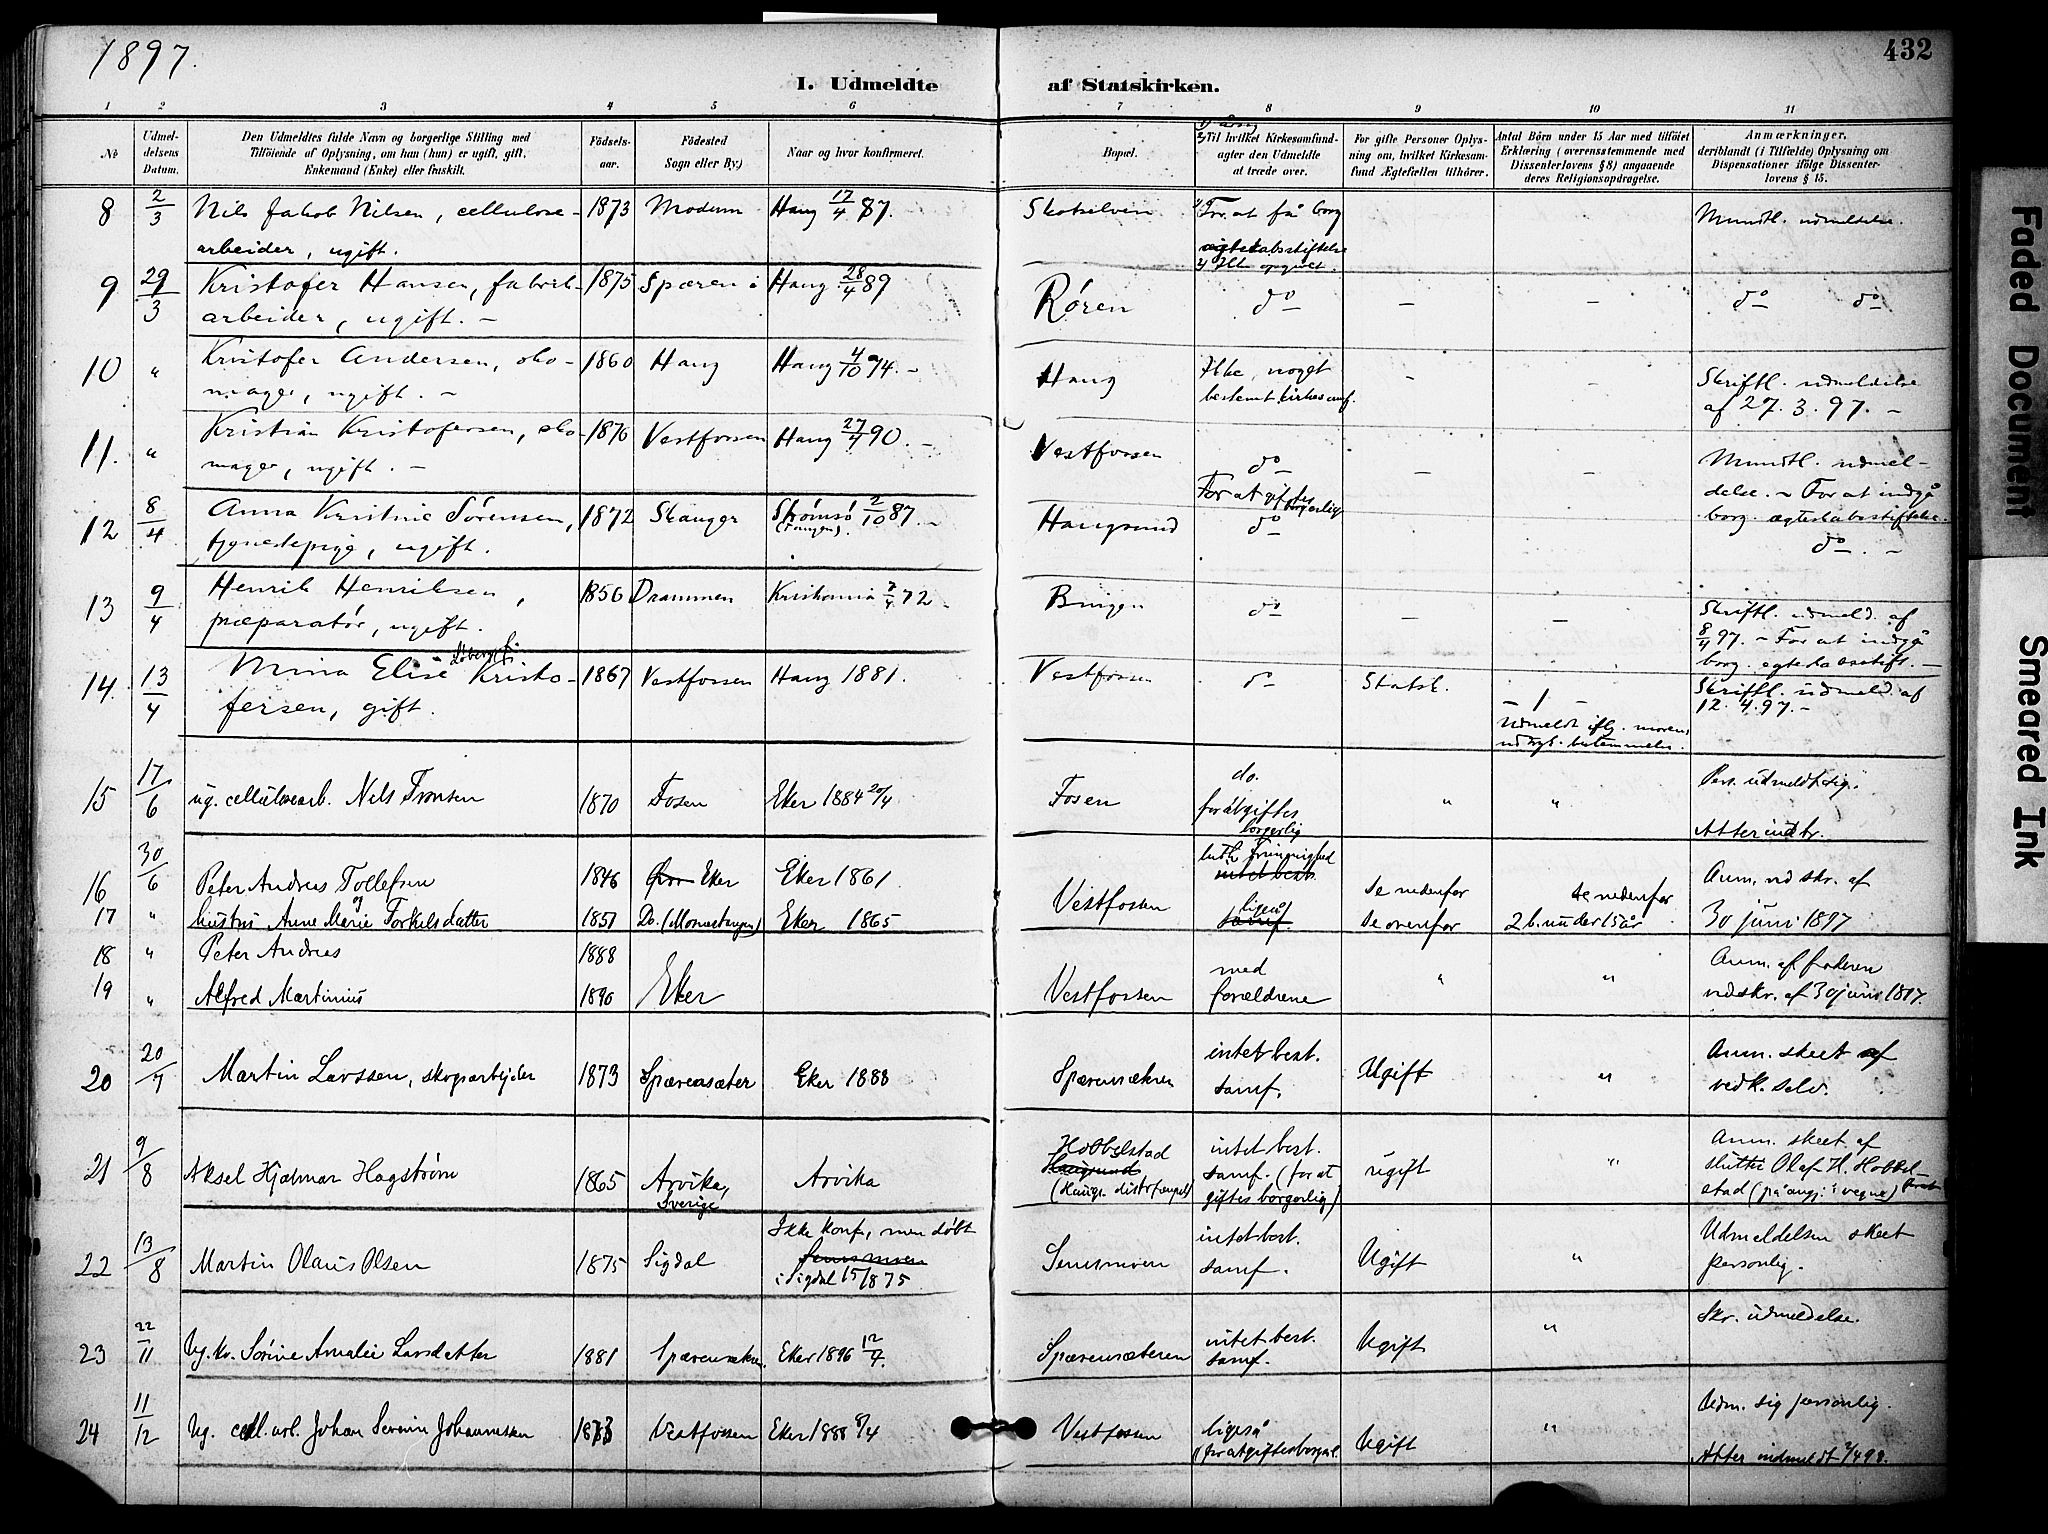 1897.
432
I. Udmeldte af Statskirken.
1 2 3 4 5 6 7 8 9 10 11
No
Udmel-
delsens
Datum.
Den Udmeldtes fulde Navn og borgerlige Stilling med
Tilføiende af Oplysning, om han (hun) er ugift, gift,
Enkemand (Enke) eller fraskilt.
Fødsels-
aar.
Fødested
Sogn eller By.)
Naar og hvor konfirmeret.
Bopæl.
Til hvilket Kirkesamfund-
agter den Udmeldte
at træde over.
For gifte Personer Oplys-
ning om, hvilket Kirkesam-
fund Ægtefællen tilhører.
Antal Børn under 15 Aar med tilføiet
Erklæring (overensstemmende med
Dissenterlovens § 8) angaaende
deres Religionsopdragelse.
Anmærkninger,
deriblandt (i Tilfælde) Oplysning om
Dispensationer ifølge Dissenter-
lovens § 15.
8 2/3 Nils Jakob Nilsen, cellulose- 1873 Modum Haug 17/4 87. Skotselven For at få borg Mundtl. udmeldelse.
arbeider, ugift. ægteskabsstiftelse
2) Ikke opgivet.
9 29/3 Kristofer Hansen, fabrik- 1875 Spæren i Haug 28/4 89 Røren do – – do do
arbeider, ugift. –
10 " Kristofer Andersen, sko- 1860 Haug Haug 4/10 74. – Haug Ikke noget – – Skriftl. udmeldelse
mager, ugift. – bestemt kirkesamf. af 27.3.97. –
11. " Kristian Kristofersen, sko- 1876 Vestfossen Haug 27/4 90. – Vestfossen do – – Mundtl. udmel-
mager, ugift. – delse. – For at indgå
borg. ægteskabsstiftelse.
12 8/4 Anna Kristine Sørensen, 1872 Skauger Strømsø 2/10 87. – Haugsund For at giftes borgerlig
tjenestepige, ugift. (Tangen). do do. –
13 9/4 Henrik Henriksen, 1856 Drammen Kristiania 7/4 72 Bingen do – – Skriftl. udmeld. af
præparatør, ugift. 8/4 97. – For at indgå
borg. egteskabsstift. –
14. 13/4 Mina Elise Kristo- 1867 Vestfossen Haug 1881. Vestfossen do Statsk. – 1 – Skriftl. udmeld. af
fersen, gift. 12.4.97. –
Udmeldt iflg. morens
udtryk. bestemmelse.
15 17/6 ug. cellulosearb. Nels Tronsen 1870 Fosen Eker 1884 20/4 Fosen do. " " Pers. udmeldt sig.
for at giftes
borgerlig Atter indtr.
16 30/6 Peter Andreas Tollefsen 1846 Øvr Eker Eker 1861 Vestfossen luth. frimenighed Se nedenfor Se nedenfor Anm. ved skr. af
intet best.
og
17 " hustru Anne Marie Torkelsdatter 1851 Do. Eker 1865 ligeså samf. Se ovenfor 2 b. under 15 år 30 juni 1897
18 " Peter Andreas 1888 med Anm. af faderen
19 " Alfred Martinius 1890 Eker Vestfossen forældrene " " ved skr. af 30 juni 1897.
20 20/7 Martin Larssen, skogsarbejder 1873 Spærensæter Eker 1888 Spærensætren intet best. Ugift " Anm. skeet af
samf. vedk. selv.
21 9/8 Aksel Hjalmar Hagstrøm 1865 Arvika, Arvika Hobbelstad intet best. ugift " Anm. skeet af
Sverige Haugsund samf. (for at slutter Olaf H. Hobbel-
giftes borgerlig) stad
22 13/8 Martin Olaus Olsen 1875 Sigdal Ikke konf., men døbt Semsmoen intet best. Ugift " Udmeldelsen skeet
Semsmoen samf. personlig.
i Sigdal 15/8 75
23 22/11 Ug. kv. Sørine Amalie Larsdatter 1881 Spærensætre. Eker 1896 12/9. Spærensæteren intet best. Ugift " Skr. udmeldelse.
samf.
24 11/12 Ug. cell. arb. Johan Severin Johannessen 1873 Vestfossen Eker 1888 8/4 Vestfossen ligeså Ugift " Udm. sig personlig.
(for at giftes borgerl. Atter indmeldt 2/4 98.
Faded Document
Smeared Ink